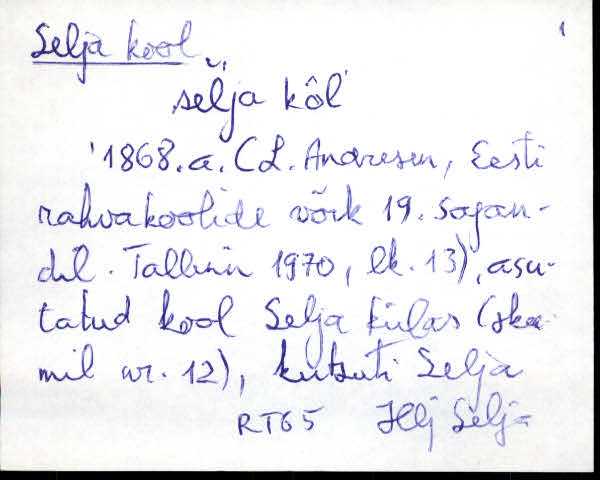 Selja kool 1
selja kôl'
1868. a. (L. Andresen, Eesti
rahvakoolide võrk 19. sajan-
dil. Tallinn 1970, lk. 13), asu-
tatud kool Selja külas (ska-
mil nr. 12), kutsuti Selja
RT65 Hlj Selja